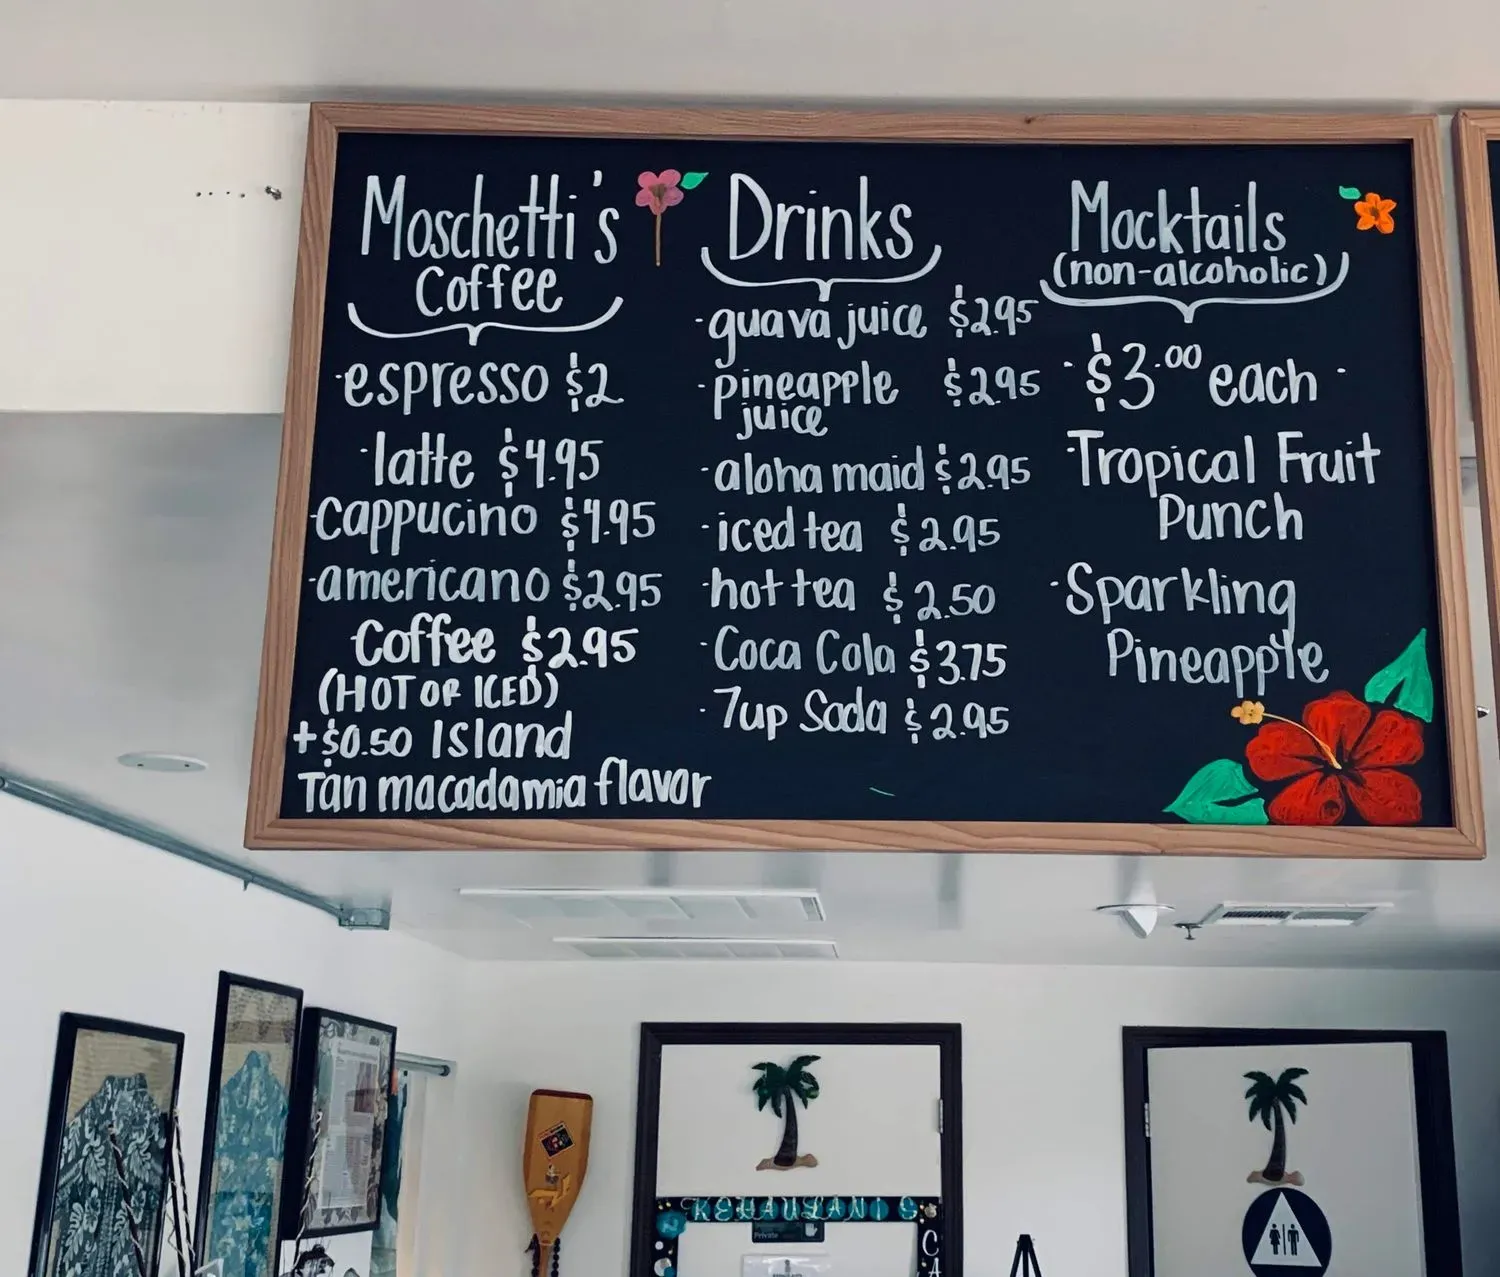 Moschetti's
Coffee
·espresso $2
·latte $4.95
·Cappucino $4.95
·americano $2.95
Coffee $2.95
(HOT OR ICED)
+$0.50 Island
Tan macadamia flavor
Drinks
·guava juice $2.95
·pineapple $2.95
juice
·aloha maid $2.95
·iced tea $2.95
·hot tea $2.50
·Coca Cola $3.75
·7up Soda $2.95
Mocktails
(non-alcoholic)
·$3.00 each·
·Tropical Fruit
Punch
·Sparkling
Pineapple
KEHAULANI'S
Private
CA